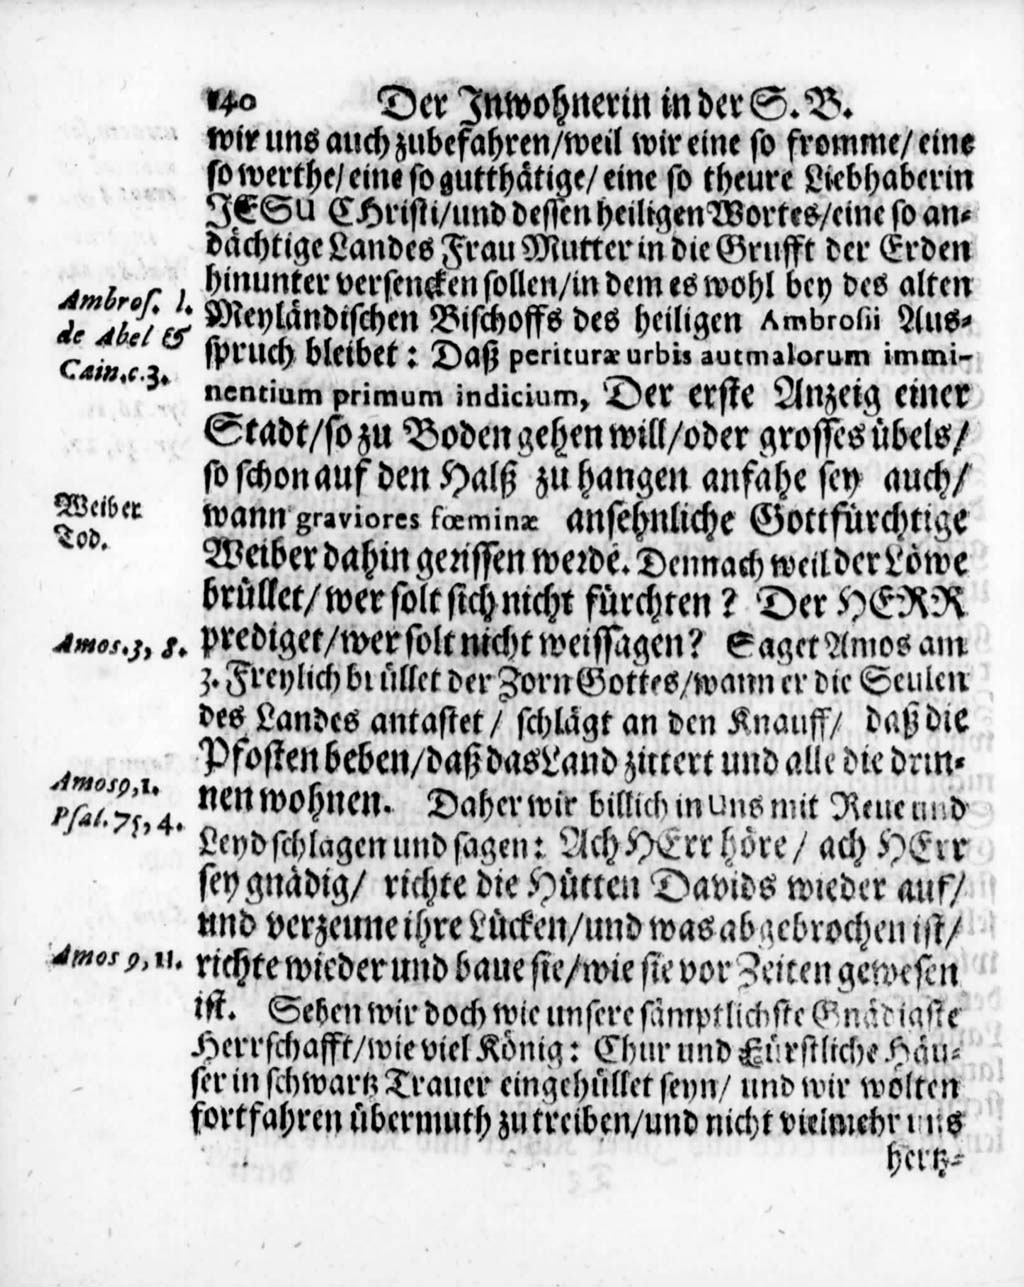 140 Der Inwohnerin in der S. B.
wir uns auch zubefahren/weil wir eine so fromme/ eine
so werthe/ eine so gutthätige/ eine so theure Liebhaberin
JESU CHristi/und dessen heiligen Wortes/eine so an-
dächtige Landes Frau Mutter in die Grufft der Erden
hinunter versencken sollen/in dem es wohl bey des alten
Ambros. l.
de Abel &
Cain.c.3.
Meyländischen Bischoffs des heiligen Ambrosii Aus-
spruch bleibet: Daß perituræ urbis aut malorum immi-
nentium primum indicium, Der erste Anzeig einer
Stadt/so zu Boden gehen will/oder grosses übels/
so schon auf den Halß zu hangen anfahe sey auch/
Weiber
Tod.
wann graviores fœminæ ansehnliche Gottfürchtige
Weiber dahin gerissen werdē. Dennach weil der Löwe
brüllet/ wer solt sich nicht fürchten? Der HERR
Amos.3, 8.
prediget/wer solt nicht weissagen? Saget Amos am
3. Freylich brüllet der Zorn Gottes/wann er die Seulen
des Landes antastet/ schlägt an den Knauff/ daß die
Pfosten beben/daß das Land zittert und alle die drin-
Amos 9,1.
Psal. 75, 4.
nen wohnen. Daher wir billich in Uns mit Reue und
Leyd schlagen und sagen: Ach HErr höre/ ach HErr
sey gnädig/ richte die Hütten Davids wieder auf/
und verzeune ihre Lücken/und was abgebrochen ist/
Amos 9, 11.
richte wieder und baue sie/wie sie vor Zeiten gewesen
ist. Sehen wir doch wie unsere sämptlichste Gnädigste
Herrschafft/wie viel König: Chur und Fürstliche Häu-
ser in schwartz Trauer eingehüllet seyn/ und wir wolten
fortfahren übermuth zu treiben/und nicht vielmehr uns
hertz-